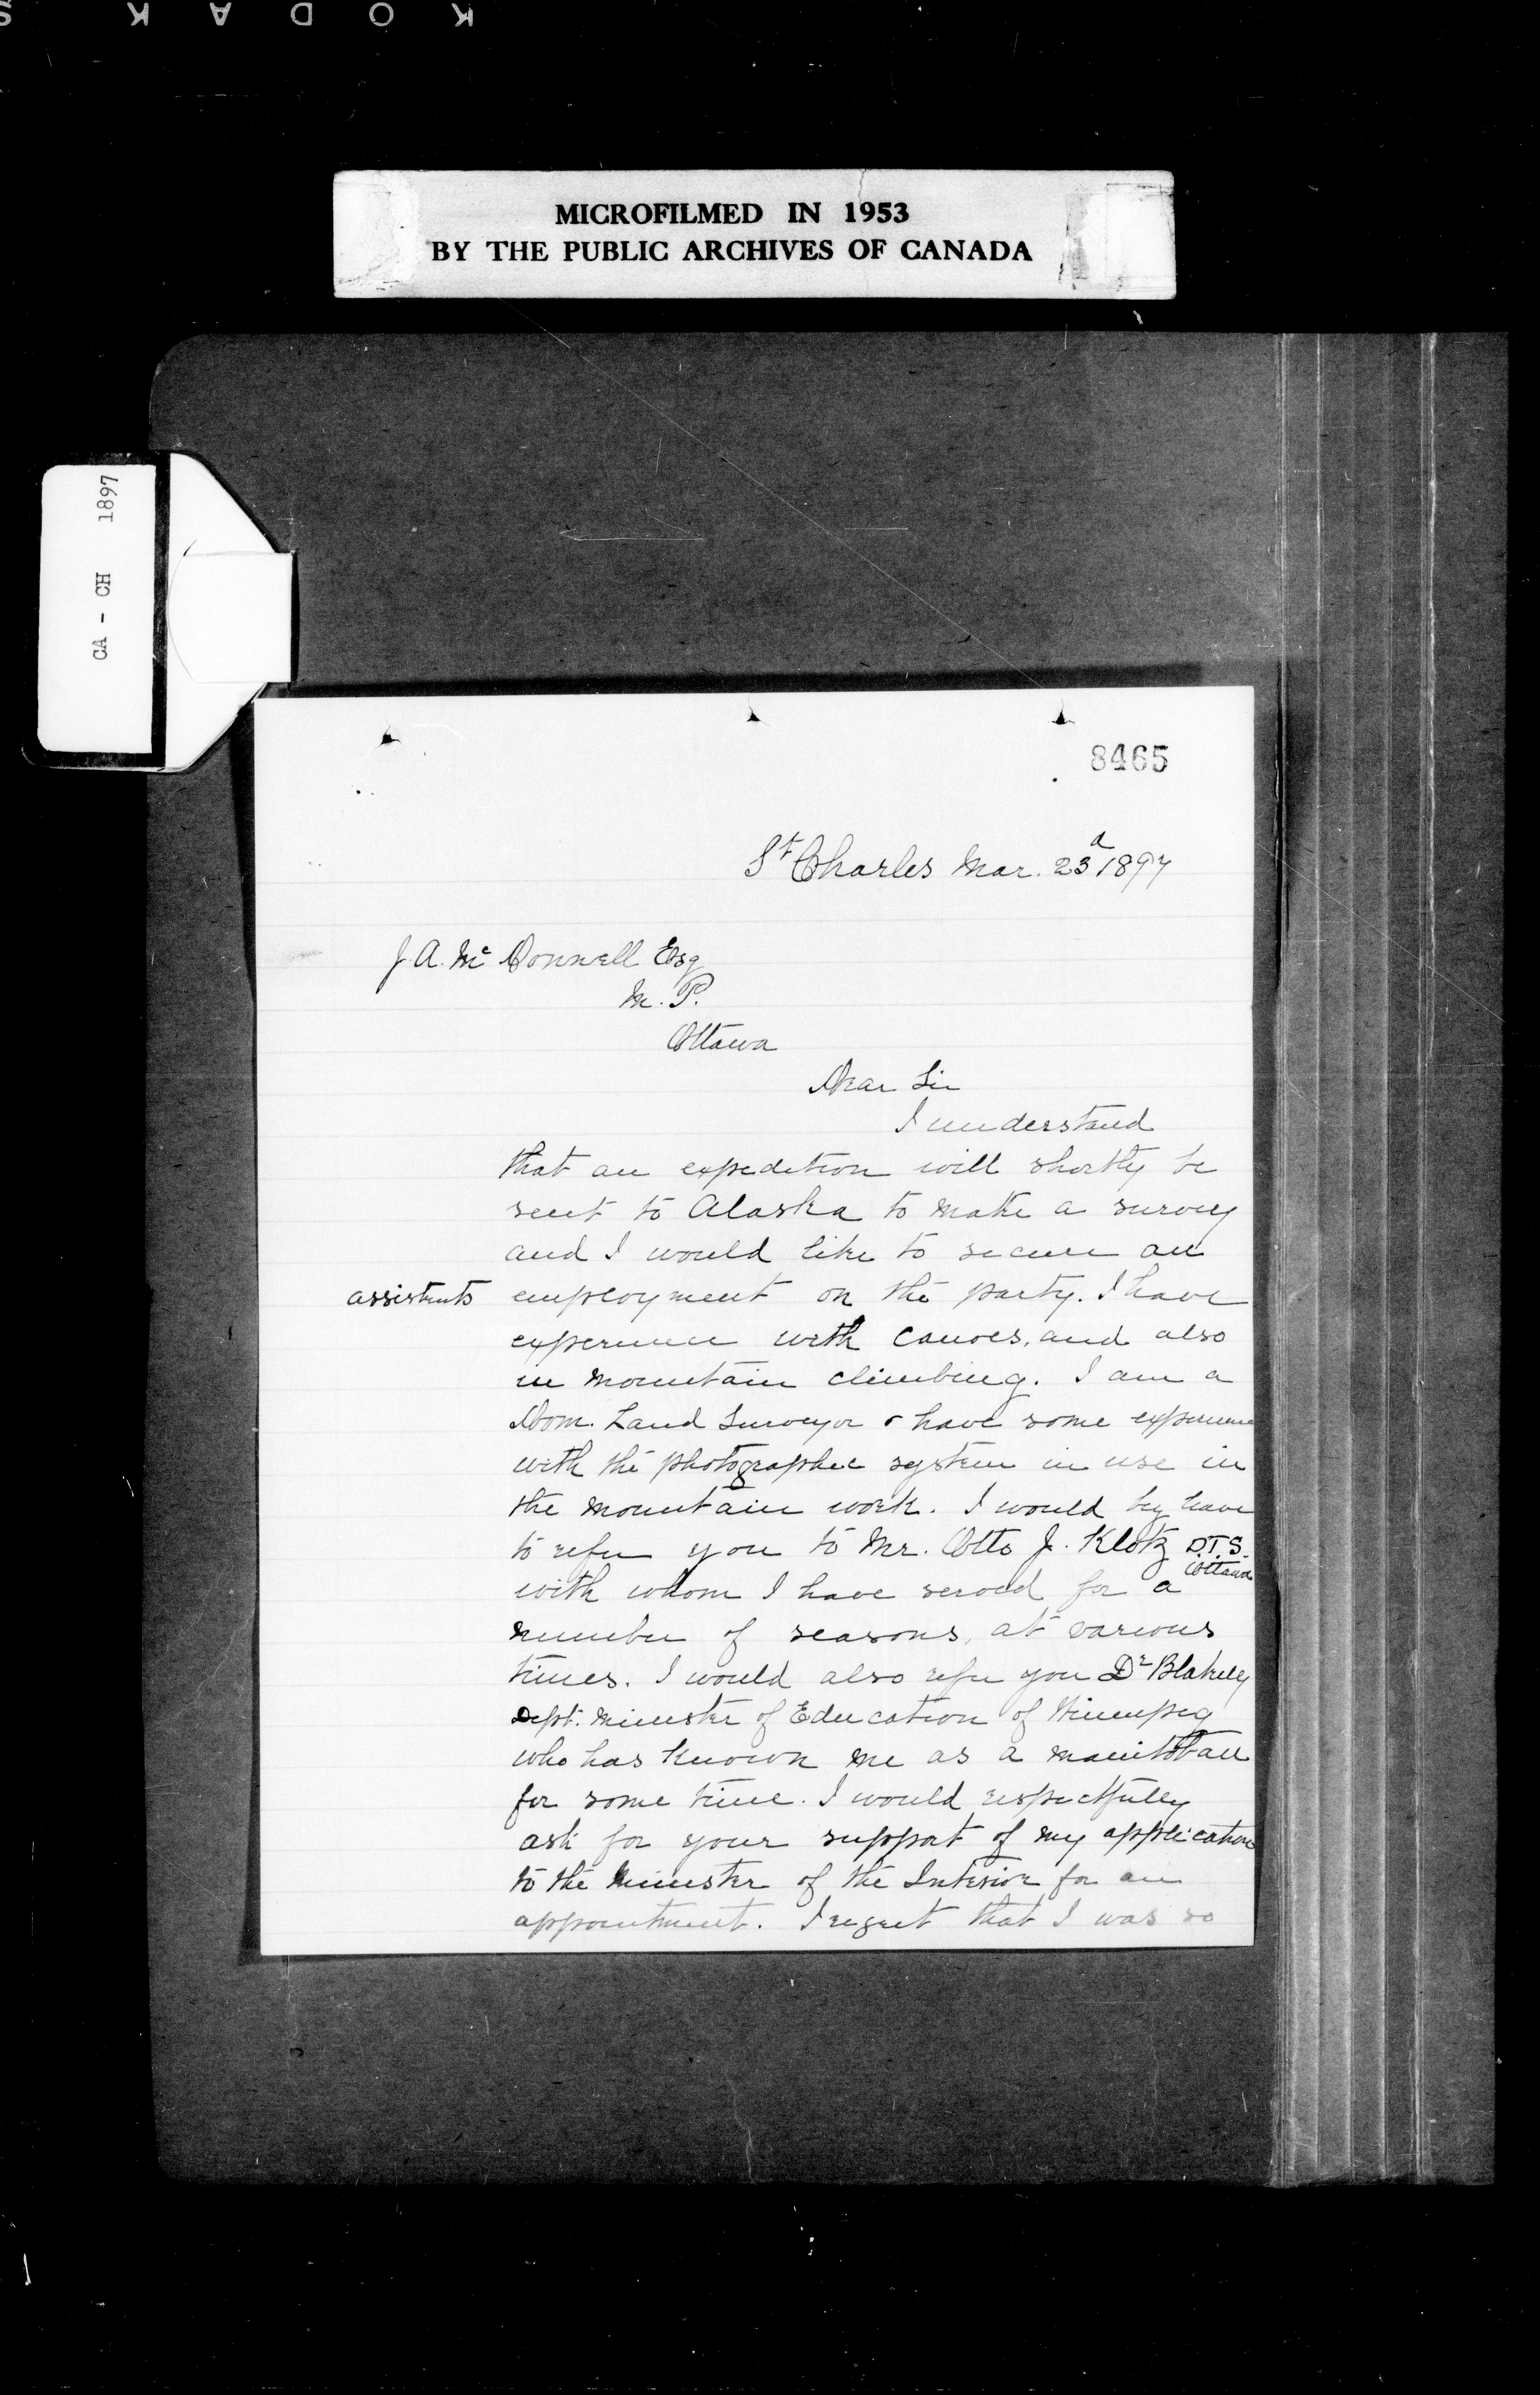 KODAK S
MICROFILMED IN 1953
BY THE PUBLIC ARCHIVES OF CANADA
CA - CH 1897
8465
St Charles Mar. 23d 1897
J. A. Mc Donnell Esq
M. P.
Ottawa
Dear Sir
I understand
that an expedition will shortly be
sent to Alaska to make a survey
and I would like to secure an
assistants employment on the party. I have
experience with canoes, and also
in mountain climbing. I am a
Dom. Land Surveyor & have some experience
with the photographic system in use in
the mountain work. I would beg leave
to refer you to Mr. Otto J. Klotz D.T.S.
Ottawa
with whom I have served for a
number of seasons, at various
times. I would also refer you Dr Blakely
Dept. Minister of Education of Winnipeg
who has known me as a Manitoban
for some time. I would respectfully
ask for your support of my application
to the Minister of the Interior for an
appointment. I regret that I was so